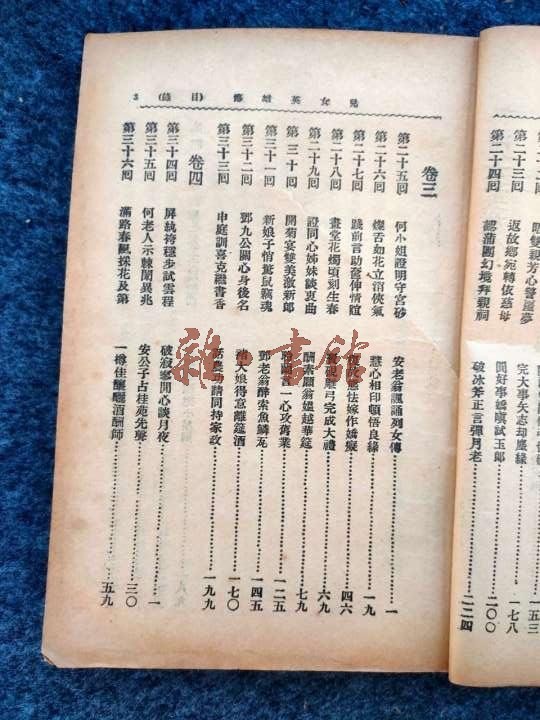 兒女英雄傳 (目錄) 3
二十二回 晤雙親芳心驚噩夢 完大事矢志却塵緣 一七八
第二十三回 返故鄉宛轉依慈母 圓好事嬌嗔試玉郎 二〇〇
第二十四回 認蒲團幻境拜親祠 破冰斧正言彈月老 二二四
卷三
第二十五回 何小姐證明守宮砂 安老翁諷誦列女傳 一
第二十六回 燦舌如花立消俠氣 慧心相印頓悟良緣 一九
第二十七回 踐前言助奩伸情誼 復故態怯嫁作嬌癡 四六
第二十八回 畫堂花燭頃刻生春 寶硯雕弓完成大禮 六九
第二十九回 證同心姊妹談衷曲 酬素願翁媼越華筵 七九
第三十回 開菊宴雙美激新郎 聆蘭言一心攻舊業 一二五
第三十一回 新娘子悄驚鼠竊魂 鄧老翁醉索魚鱗瓦 一四五
第三十二回 鄧九公關心身後名 褚大娘得意離筵酒 一七〇
第三十三回 申庭訓喜克繼書香 話農功請同持家政 一九九
卷四
第三十四回 屏紈袴穩步試雲程 破寂寥閒心談月夜 一
第三十五回 何老人示棘闈異兆 安公子占桂苑先聲 三〇
第三十六回 滿路春風採花及第 一樽佳釀釃酒酬師 五九
雜·書館